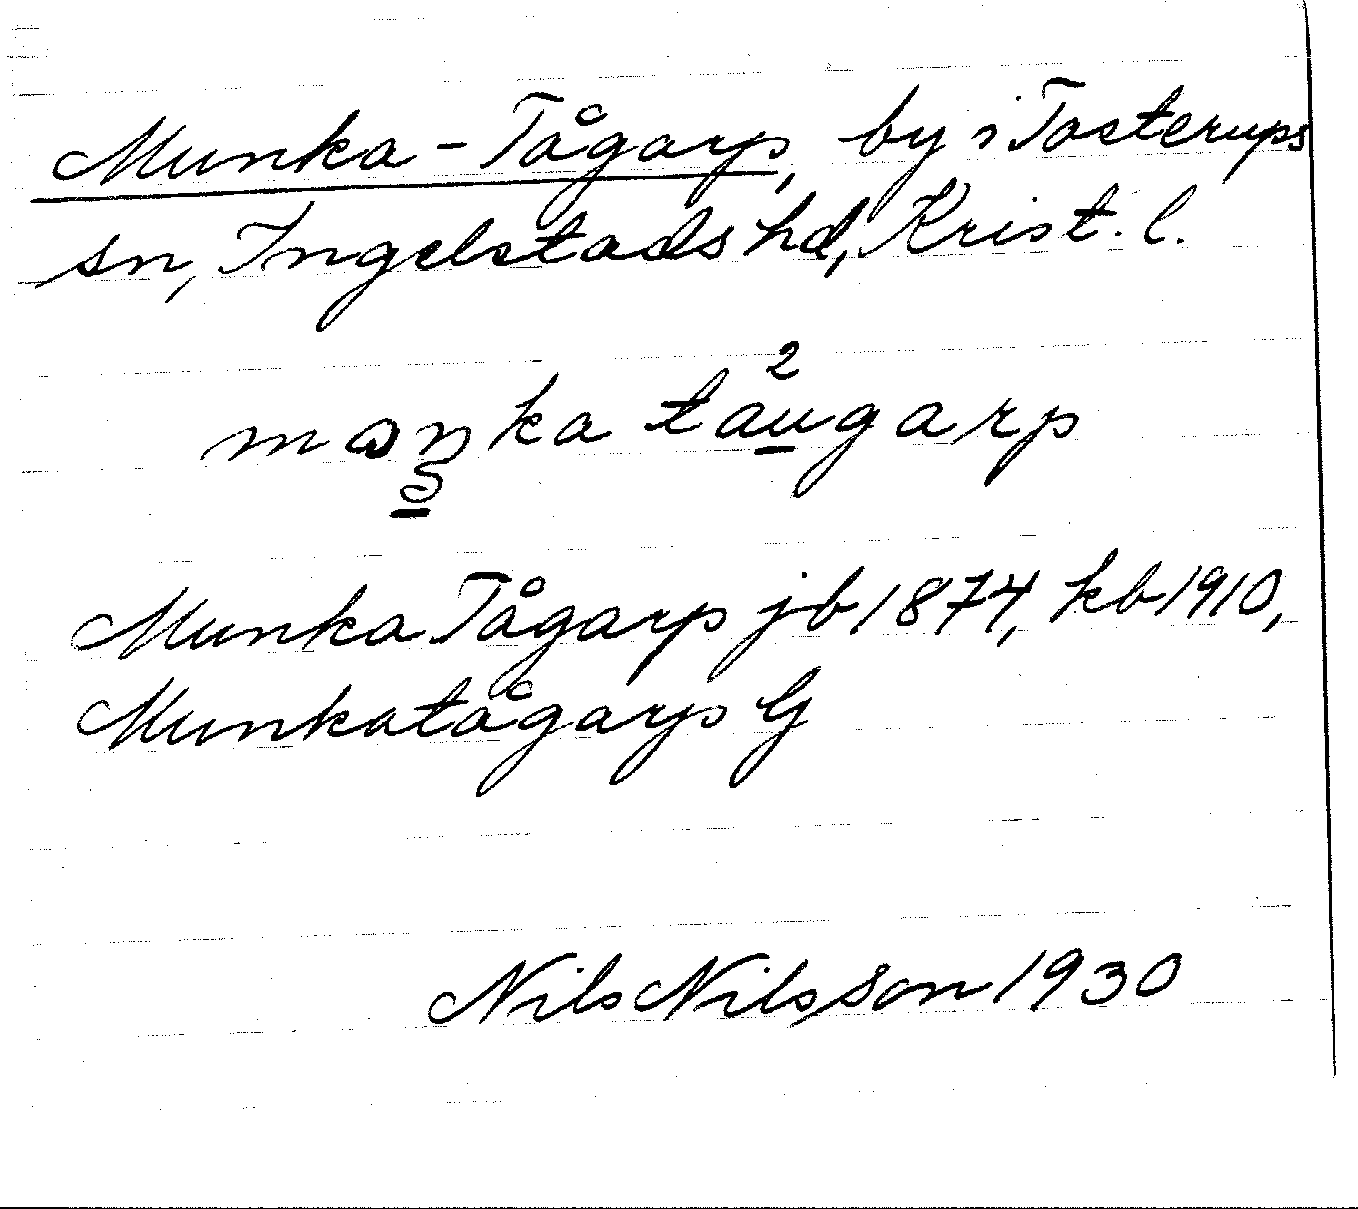 Munka-Tågarp, by i Tosterups
sn, Ingelstads hd, Krist. l.
2
maŋka taugarp
Munka Tågarp jb 1874, kb 1910,
Munkatågarp G
Nils Nilsson 1930